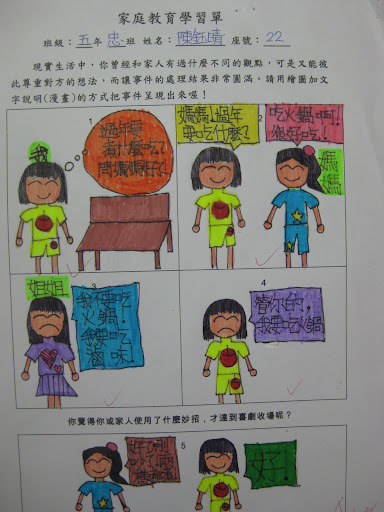 家庭教育學習單
班級：五年忠班 姓名：陳鈺晴 座號：22
現實生活中，你曾經和家人有過什麼不同的觀點，可是又能彼
此尊重對方的想法，而讓事件的處理結果非常圓滿。請用繪圖加文
字說明(漫畫)的方式把事件呈現出來喔！
1
我
過年要
煮什麼吃?
問媽媽好了!
2
媽媽!過年
要吃什麼?
吃火鍋啊!
很好吃!
媽
媽
3
姐姐
我不要吃
火鍋!
我要吃
滷味!
4
管你的,
我要吃火鍋
你覺得你或家人使用了什麼妙招，才達到喜劇收場呢？
好了別
吵了兩
好!